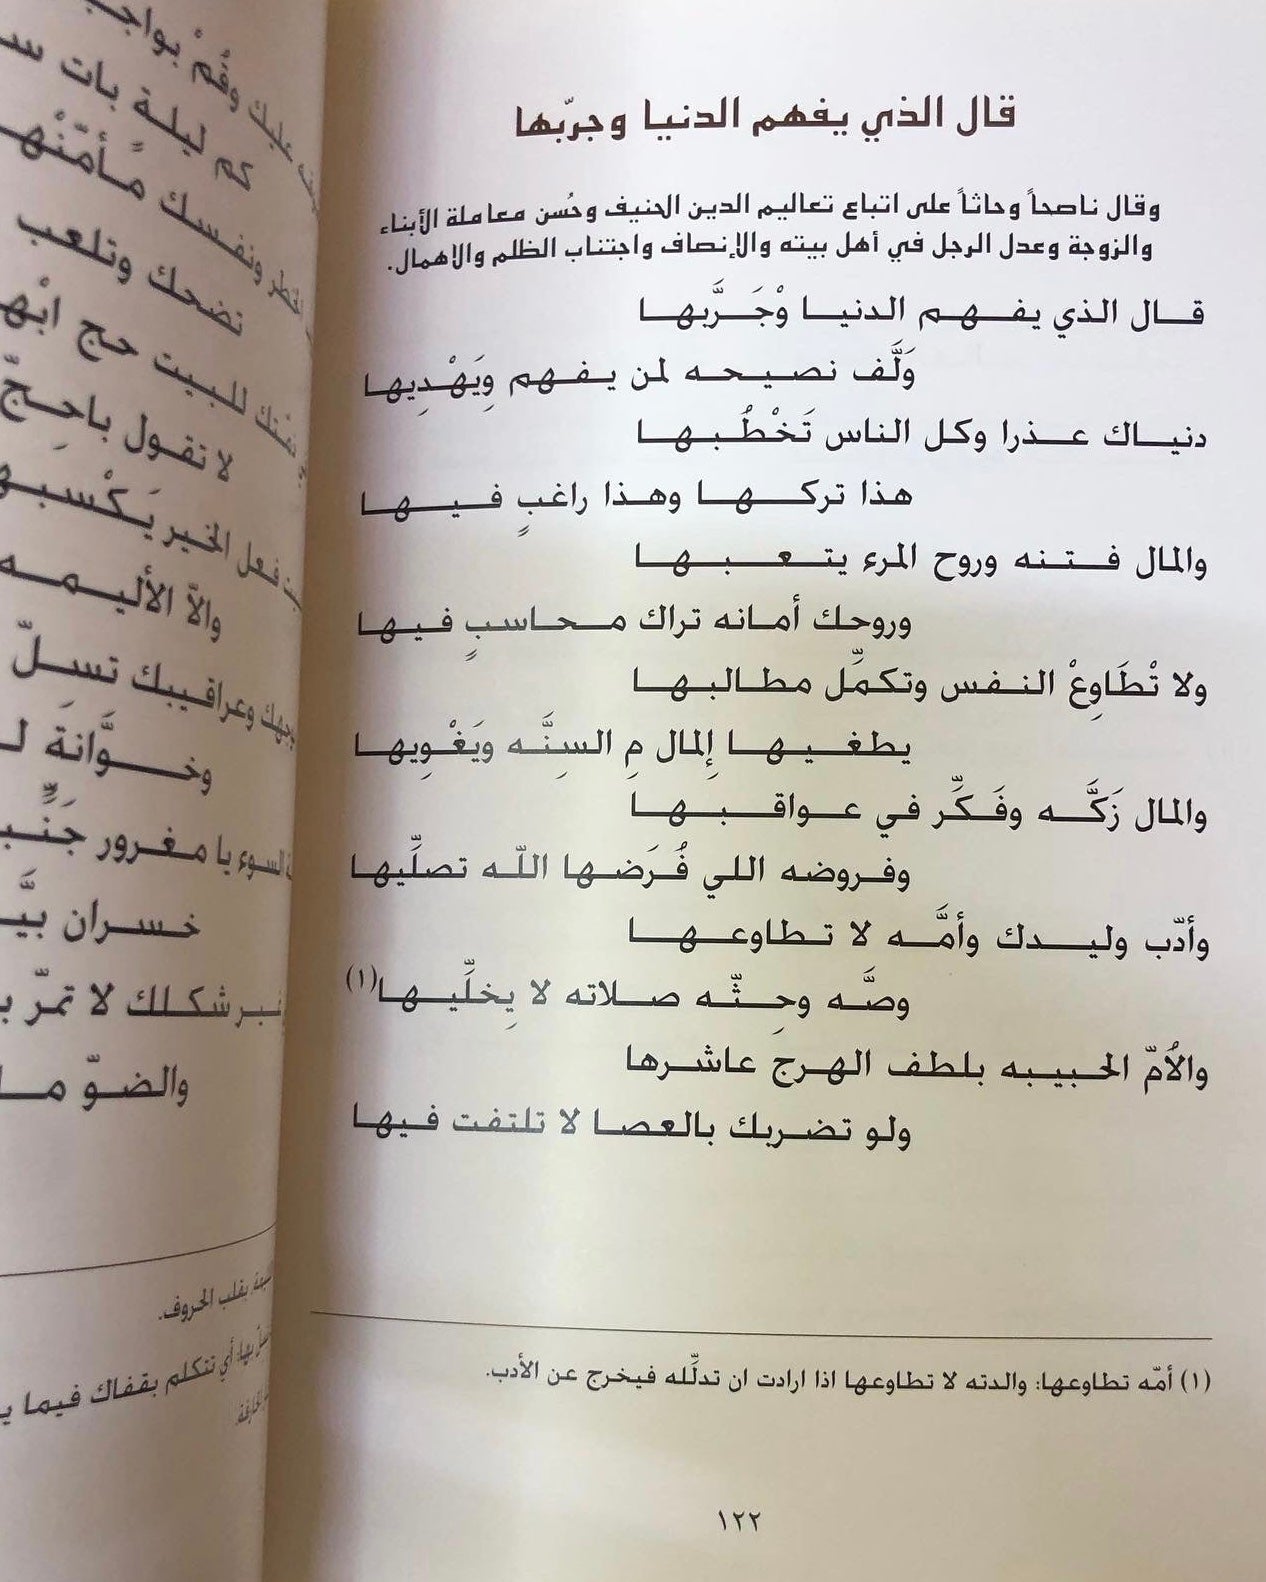 قال الذي يفهم الدنيا وجرّبها
وقال ناصحاً وحاثاً على اتباع تعاليم الدين الحنيف وحُسن معاملة الأبناء
والزوجة وعدل الرجل في أهل بيته والإنصاف واجتناب الظلم والاهمال.
قال الذي يفهم الدنيا وْجَرَّبها
وَلَّف نصيحه لمن يفهم وِيَهْدِيها
دنياك عذرا وكل الناس تَخْطُبها
هذا تركها وهذا راغبٍ فيها
والمال فتنه وروح المرء يتعبها
وروحك أمانه تراك محاسبٍ فيها
ولا تْطَاوِعْ النفس وتكمِّل مطالبها
يطغيها إلمال مِ السِنَّه ويَغْوِيها
والمال زَكَّه وفَكِّر في عواقبها
وفروضه اللي فُرَضها اللّه تصلِّيها
وأدّب وليدك وأمَّه لا تطاوعها
وصَّه وحِثّه صلاته لا يِخلِّيها(١)
والأمّ الحبيبه بلطف الهرج عاشرها
ولو تضربك بالعصا لا تلتفت فيها
(١) أمّه تطاوعها: والدته لا تطاوعها اذا ارادت ان تدلِّله فيخرج عن الأدب.
١٢٢
كم ليلة بات
تضحك وتلعب
للبيت حج
لا تقول باحِجّ
فعل الخير يَكْسبها
والاّ الأليمه
وعراقيبك تسِلّ
وخوَّانة
السوء يا مغرور
خسران
شكلك لا تمرّ
والضوّ
بقلب الحروف.
أي تتكلم بقفاك فيما